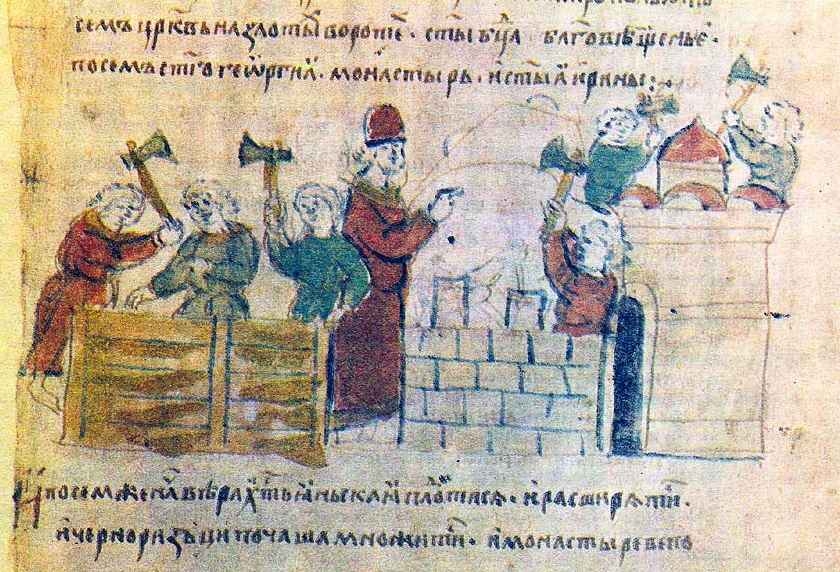 семъ црквь на златы воротѣ . ст҃ыꙗ бц҃а благовѣщенье .
посемъ ст҃го геѡргиꙗ . монастырь . и ст҃ыꙗ ирины :
И посемже нача вѣра хт҃ьꙗньскаꙗ плодтисѧ . и расширѧтⷭи .
и черноризьци почаша множитⷭи . и монастыреве по